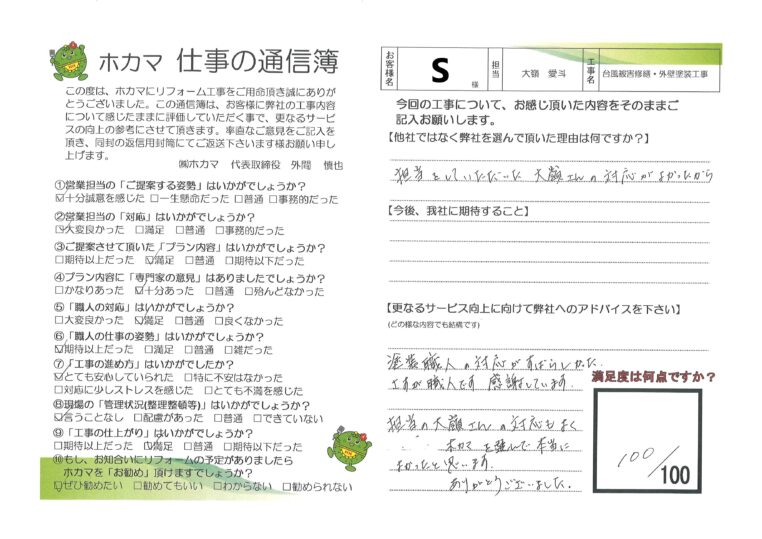 ホカマ 仕事の通信簿
この度は、ホカマにリフォーム工事をご用命頂き誠にありが
とうございました。この通信簿は、お客様に弊社の工事内容
について感じたままに評価していただく事で、更なるサービ
スの向上の参考にさせて頂きます。率直なご意見をご記入を
頂き、同封の返信用封筒にてご返送下さいます様お願い申し
上げます。
㈱ホカマ 代表取締役 外間 慎也
①営業担当の「ご提案する姿勢」はいかがでしょうか?
☑十分誠意を感じた □一生懸命だった □普通 □事務的だった
②営業担当の「対応」はいかがでしょうか?
☑大変良かった □満足 □普通 □事務的だった
③ご提案させて頂いた「プラン内容」はいかがでしょうか?
□期待以上だった ☑満足 □普通 □期待以下だった
④プラン内容に「専門家の意見」はありましたでしょうか?
□かなりあった ☑十分あった □普通 □殆んどなかった
⑤「職人の対応」はいかがでしょうか?
□大変良かった ☑満足 □普通 □良くなかった
⑥「職人の仕事の姿勢」はいかがでしょうか?
☑期待以上だった □満足 □普通 □雑だった
⑦「工事の進め方」はいかがでしたか?
☑とても安心していられた □特に不安はなかった
□対応に少しストレスを感じた □とても不満を感じた
⑧現場の「管理状況(整理整頓等)」はいかがでしょうか?
☑言うことなし □配慮があった □普通 □できていない
⑨「工事の仕上がり」はいかがでしょうか?
□期待以上だった ☑満足 □普通 □期待以下だった
⑩もし、お知合いにリフォームの予定がありましたら
ホカマを「お勧め」頂けますでしょうか?
☑ぜひ勧めたい □勧めてもいい □わからない □勧められない
お客様名 S 様 担当 大嶺 愛斗 工事名 台風被害修繕・外壁塗装工事
今回の工事について、お感じ頂いた内容をそのままご
記入お願いします。
【他社ではなく弊社を選んで頂いた理由は何ですか?】
担当をしていただいた 大嶺さんの対応がよかったから
【今後、我社に期待すること】
【更なるサービス向上に向けて弊社へのアドバイスを下さい】
(どの様な内容でも結構です)
塗装職人の対応がすばらしかた
さすが職人です 感謝しています.
満足度は何点ですか?
担当の大嶺さんの対応もよく
ホカマを選んで本当に
よかったと思います.
ありがとうございました.
100/100